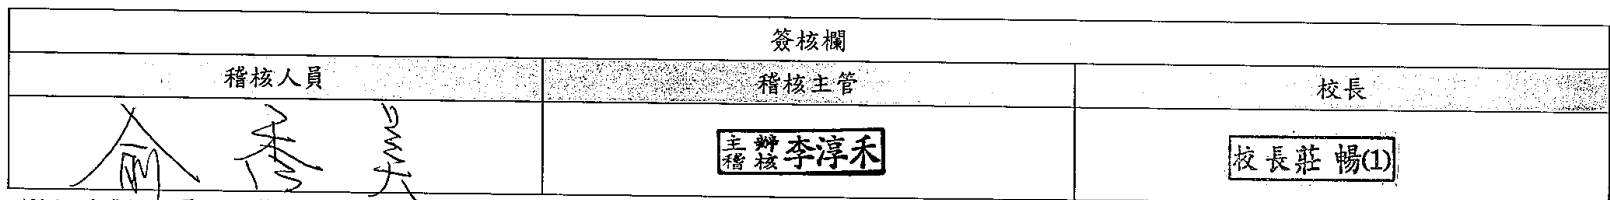 簽核欄
稽核人員 稽核主管 校長
俞秀美 主辦稽核 李淳禾 校長莊暢(1)